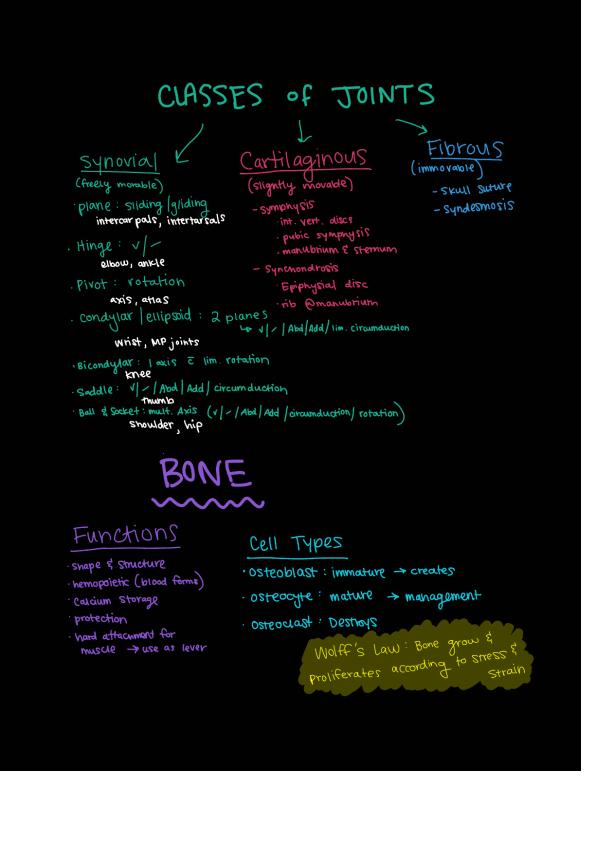 CLASSES of JOINTS
Synovial
(freely movable)
· plane : sliding /gliding
intercarpals, intertarsals
· Hinge : ✓/-
elbow, ankle
· Pivot : rotation
axis, atlas
· Condylar /ellipsoid : 2 planes
↳ ✓/-/Abd/Add/lim. circumduction
wrist, MP joints
· Bicondylar : 1 axis c̄ lim. rotation
knee
· Saddle : ✓/-/Abd/Add/circumduction
thumb
· Ball & Socket : mult. Axis (✓/-/Abd/Add/circumduction/rotation)
shoulder, hip
Cartilaginous
(slightly movable)
- symphysis
· int. vert. discs
· pubic symphysis
· manubrium & sternum
- Synchondrosis
· Epiphysial disc
· rib @manubrium
Fibrous
(immovable)
- Skull suture
- Syndesmosis
BONE
Functions
· shape & structure
· hemopoietic (blood forms)
· Calcium storage
· protection
· hard attachment for
muscle → use as lever
Cell Types
· Osteoblast : immature → creates
· Osteocyte : mature → management
· Osteoclast : Destroys
Wolff's Law : Bone grow &
proliferates according to stress &
strain